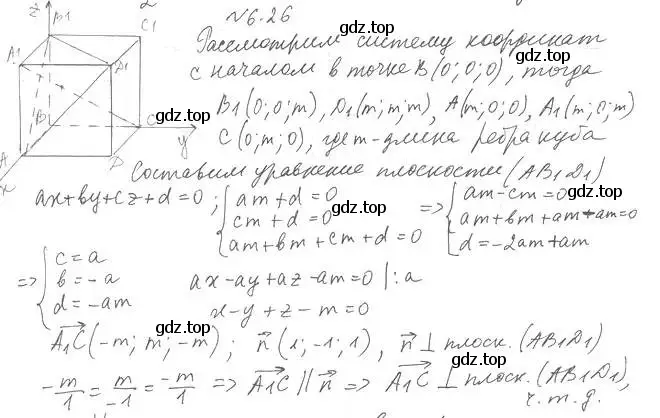 N 6.26
Рассмотрим систему координат
с началом в точке B (0; 0; 0), тогда
B1 (0; 0; m), D1 (m; m; m), A (m; 0; 0), A1 (m; 0; m)
C (0; m; 0), где m - длина ребра куба
Составим уравнение плоскости (AB1D1)
ax + by + cz + d = 0 ; { am + d = 0 ; cm + d = 0 ; am + bm + cm + d = 0 => { am - cm = 0 ; am + bm + am - am = 0 ; d = -2am + am
=> { c = a ; b = -a ; d = -am
ax - ay + az - am = 0 |: a
x - y + z - m = 0
A1C (-m; m; -m) ; n (1; -1; 1), n ⊥ плоск. (AB1D1)
-m/1 = m/-1 = -m/1 => A1C || n => A1C ⊥ плоск. (AB1D1),
ч.т.д.
z
B1
C1
A1
D1
B
C
y
A
D
x
gdz.top
gdz.top
gdz.top
gdz.top
gdz.top
gdz.top
gdz.top
gdz.top
gdz.top
gdz.top
gdz.top
gdz.top